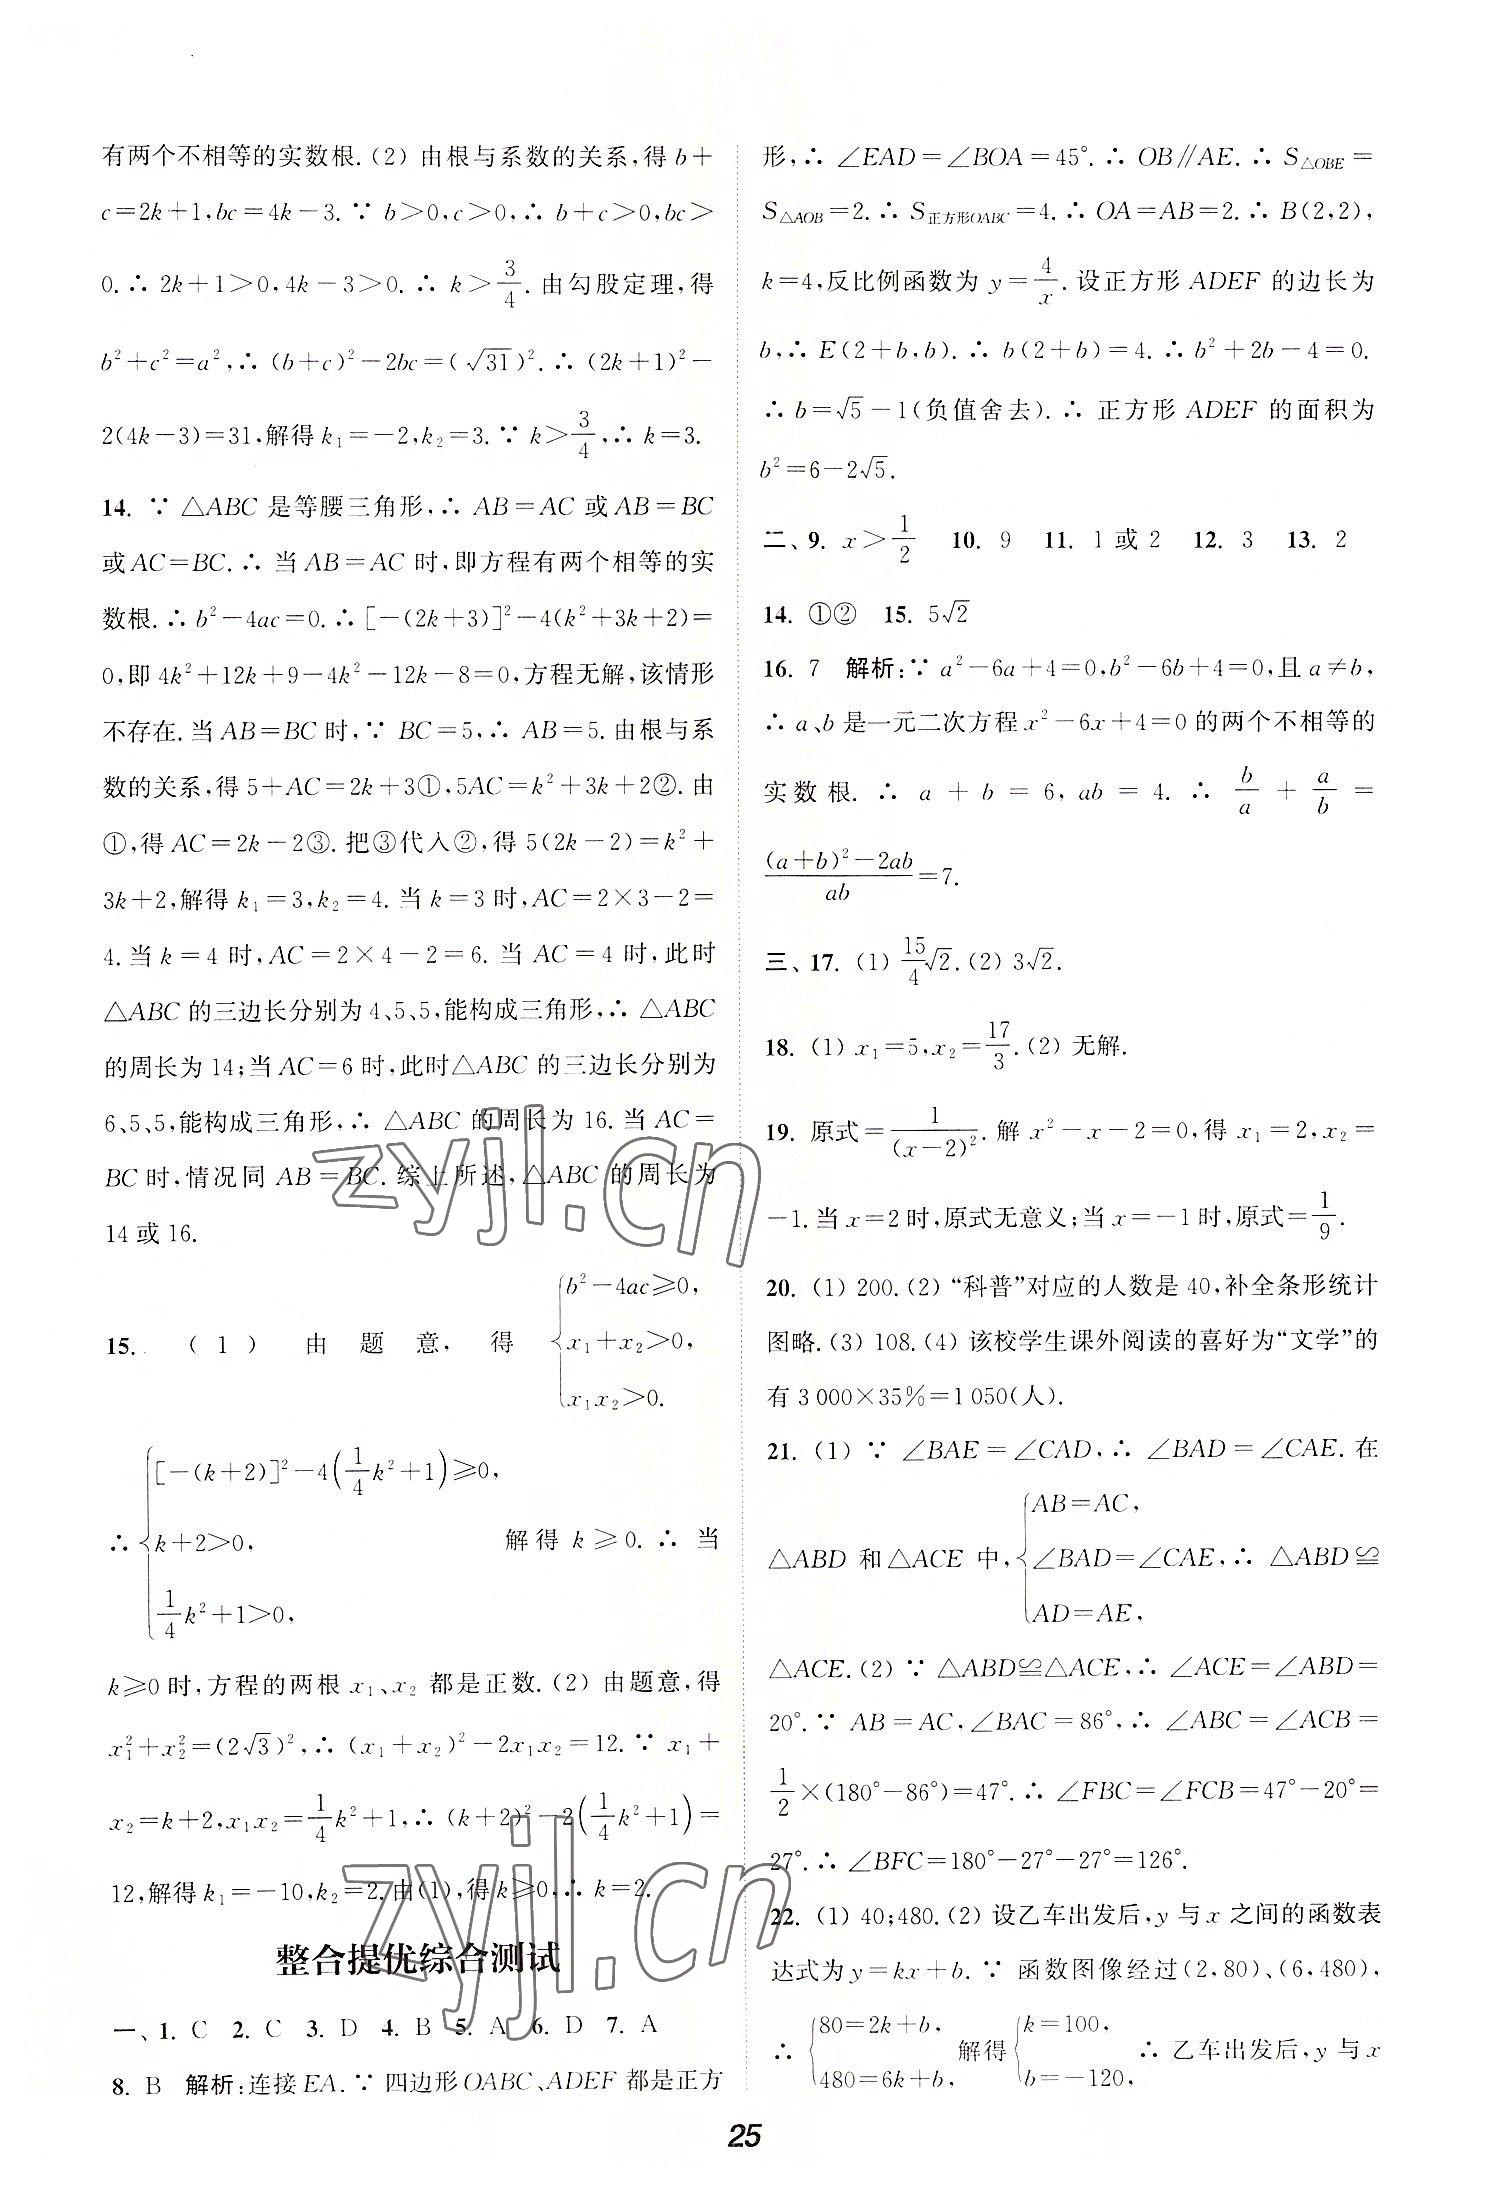 有两个不相等的实数根.(2) 由根与系数的关系,得 b+
c=2k+1,bc=4k-3.∵ b>0,c>0,∴ b+c>0,bc>
0.∴ 2k+1>0,4k-3>0.∴ k>3/4.由勾股定理,得
b²+c²=a²,∴ (b+c)²-2bc=(√31)².∴ (2k+1)²-
2(4k-3)=31,解得 k₁=-2,k₂=3.∵ k>3/4,∴ k=3.
14. ∵ △ABC 是等腰三角形,∴ AB=AC 或 AB=BC
或 AC=BC.∴ 当 AB=AC 时,即方程有两个相等的实
数根.∴ b²-4ac=0.∴ [-(2k+3)]²-4(k²+3k+2)=
0,即 4k²+12k+9-4k²-12k-8=0,方程无解,该情形
不存在.当 AB=BC 时,∵ BC=5,∴ AB=5.由根与系
数的关系,得 5+AC=2k+3①,5AC=k²+3k+2②.由
①,得 AC=2k-2③.把③代入②,得 5(2k-2)=k²+
3k+2,解得 k₁=3,k₂=4.当 k=3 时,AC=2×3-2=
4.当 k=4 时,AC=2×4-2=6.当 AC=4 时,此时
△ABC 的三边长分别为 4、5、5,能构成三角形,∴ △ABC
的周长为 14;当 AC=6 时,此时△ABC 的三边长分别为
6、5、5,能构成三角形,∴ △ABC 的周长为 16.当 AC=
BC 时,情况同 AB=BC.综上所述,△ABC 的周长为
14 或 16.
15. (1) 由题意,得 {b²-4ac≥0,
x₁+x₂>0,
x₁x₂>0.
∴ {[-(k+2)]²-4(1/4k²+1)≥0,
k+2>0, 解得 k≥0.∴ 当
1/4k²+1>0,
k≥0 时,方程的两根 x₁、x₂ 都是正数.(2) 由题意,得
x₁²+x₂²=(2√3)²,∴ (x₁+x₂)²-2x₁x₂=12.∵ x₁+
x₂=k+2,x₁x₂=1/4k²+1,∴ (k+2)²-2(1/4k²+1)=
12,解得 k₁=-10,k₂=2.由(1),得 k≥0,∴ k=2.
整合提优综合测试
一、1. C 2. C 3. D 4. B 5. A 6. D 7. A
8. B 解析:连接 EA.∵ 四边形 OABC、ADEF 都是正方
形,∴ ∠EAD=∠BOA=45°.∴ OB∥AE.∴ S△OBE=
S△AOB=2.∴ S正方形OABC=4.∴ OA=AB=2.∴ B(2,2),
k=4,反比例函数为 y=4/x.设正方形 ADEF 的边长为
b,∴ E(2+b,b).∴ b(2+b)=4.∴ b²+2b-4=0.
∴ b=√5-1(负值舍去).∴ 正方形 ADEF 的面积为
b²=6-2√5.
二、9. x>1/2 10. 9 11. 1 或 2 12. 3 13. 2
14. ①② 15. 5√2
16. 7 解析:∵ a²-6a+4=0,b²-6b+4=0,且 a≠b,
∴ a、b 是一元二次方程 x²-6x+4=0 的两个不相等的
实数根.∴ a+b=6,ab=4.∴ b/a+a/b=
((a+b)²-2ab)/ab=7.
三、17. (1) 15/4√2.(2) 3√2.
18. (1) x₁=5,x₂=17/3.(2) 无解.
19. 原式=1/(x-2)².解 x²-x-2=0,得 x₁=2,x₂=
-1.当 x=2 时,原式无意义;当 x=-1 时,原式=1/9.
20. (1) 200.(2) “科普”对应的人数是 40,补全条形统计
图略.(3) 108.(4) 该校学生课外阅读的喜好为“文学”的
有 3 000×35%=1 050(人).
21. (1) ∵ ∠BAE=∠CAD,∴ ∠BAD=∠CAE.在
△ABD 和△ACE 中,{AB=AC,
∠BAD=∠CAE,∴ △ABD≌
AD=AE,
△ACE.(2) ∵ △ABD≌△ACE,∴ ∠ACE=∠ABD=
20°.∵ AB=AC,∠BAC=86°,∴ ∠ABC=∠ACB=
1/2×(180°-86°)=47°.∴ ∠FBC=∠FCB=47°-20°=
27°.∴ ∠BFC=180°-27°-27°=126°.
22. (1) 40;480.(2) 设乙车出发后,y 与 x 之间的函数表
达式为 y=kx+b.∵ 函数图像经过(2,80)、(6,480),
∴ {80=2k+b, 480=6k+b, 解得{k=100, b=-120, ∴ 乙车出发后,y 与 x
25
zyjl.cn
zyjl.cn